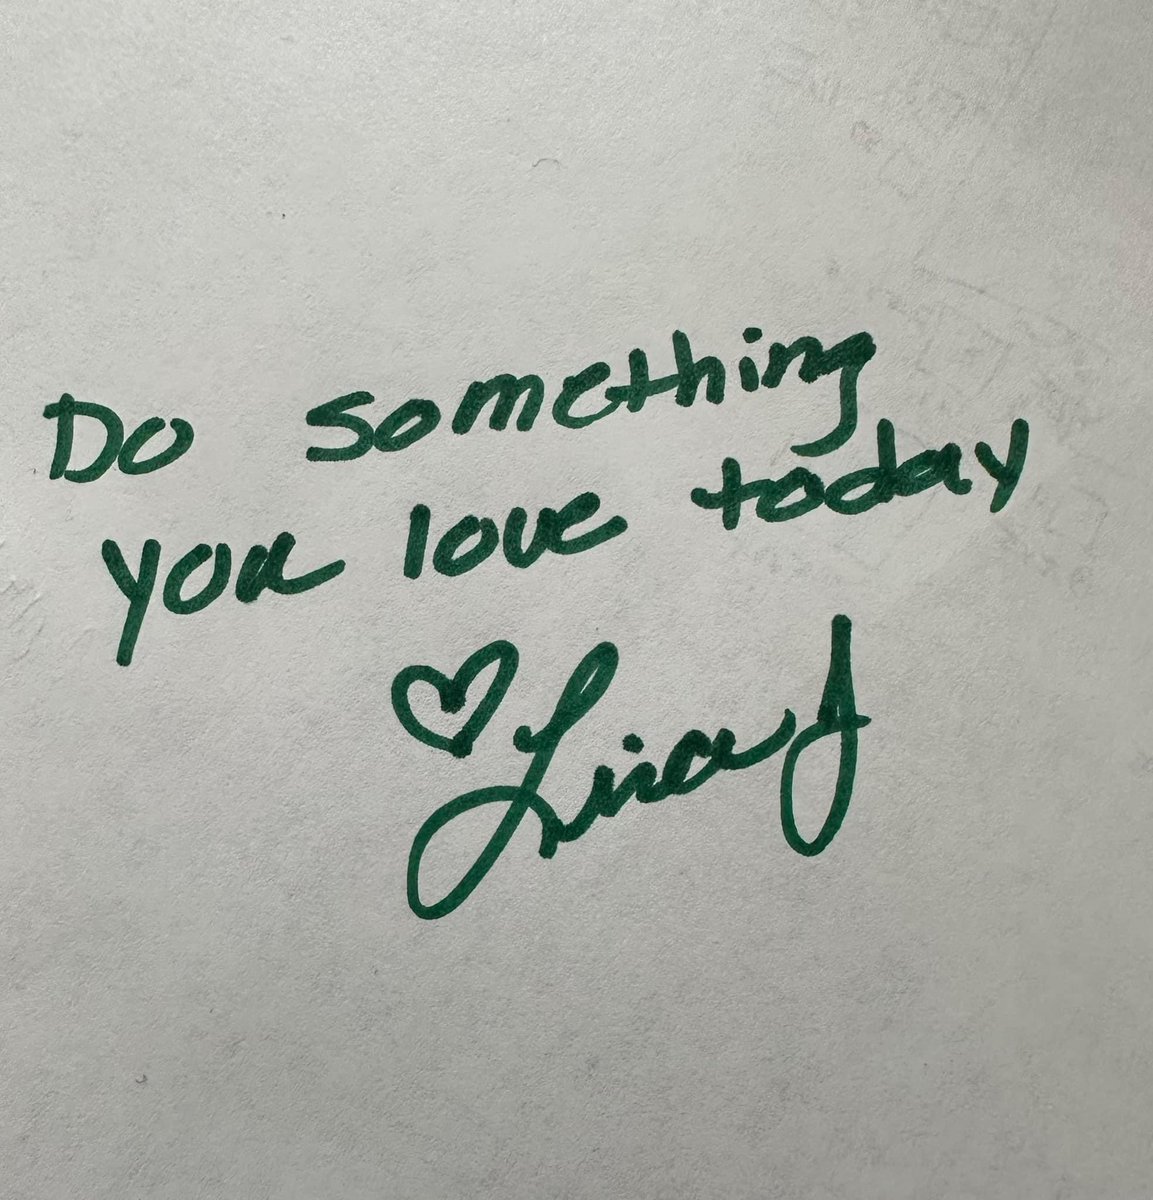 Do something
you love today
♡ Lina J